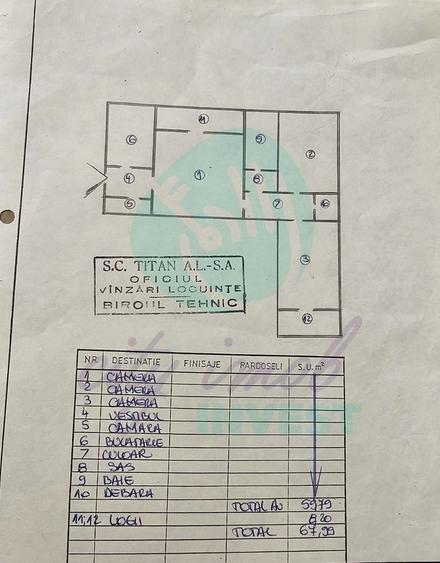 11
6
9
2
1
4
8
5
7
10
3
S.C. TITAN A.L.-S.A.
OFICIUL
VÎNZĂRI LOCUINŢE
BIROUL TEHNIC
12
NR. DESTINATIE FINISAJE PARDOSELI S.U. m²
1 CAMERA
2 CAMERA
3 CAMERA
4 VESTIBUL
5 CAMARA
6 BUCATARIE
7 CULOAR
8 SAS
9 BAIE
10 DEBARA
TOTAL AU 59,79
11,12 LOGII 8,20
TOTAL 67,99
city imobil
INVEST